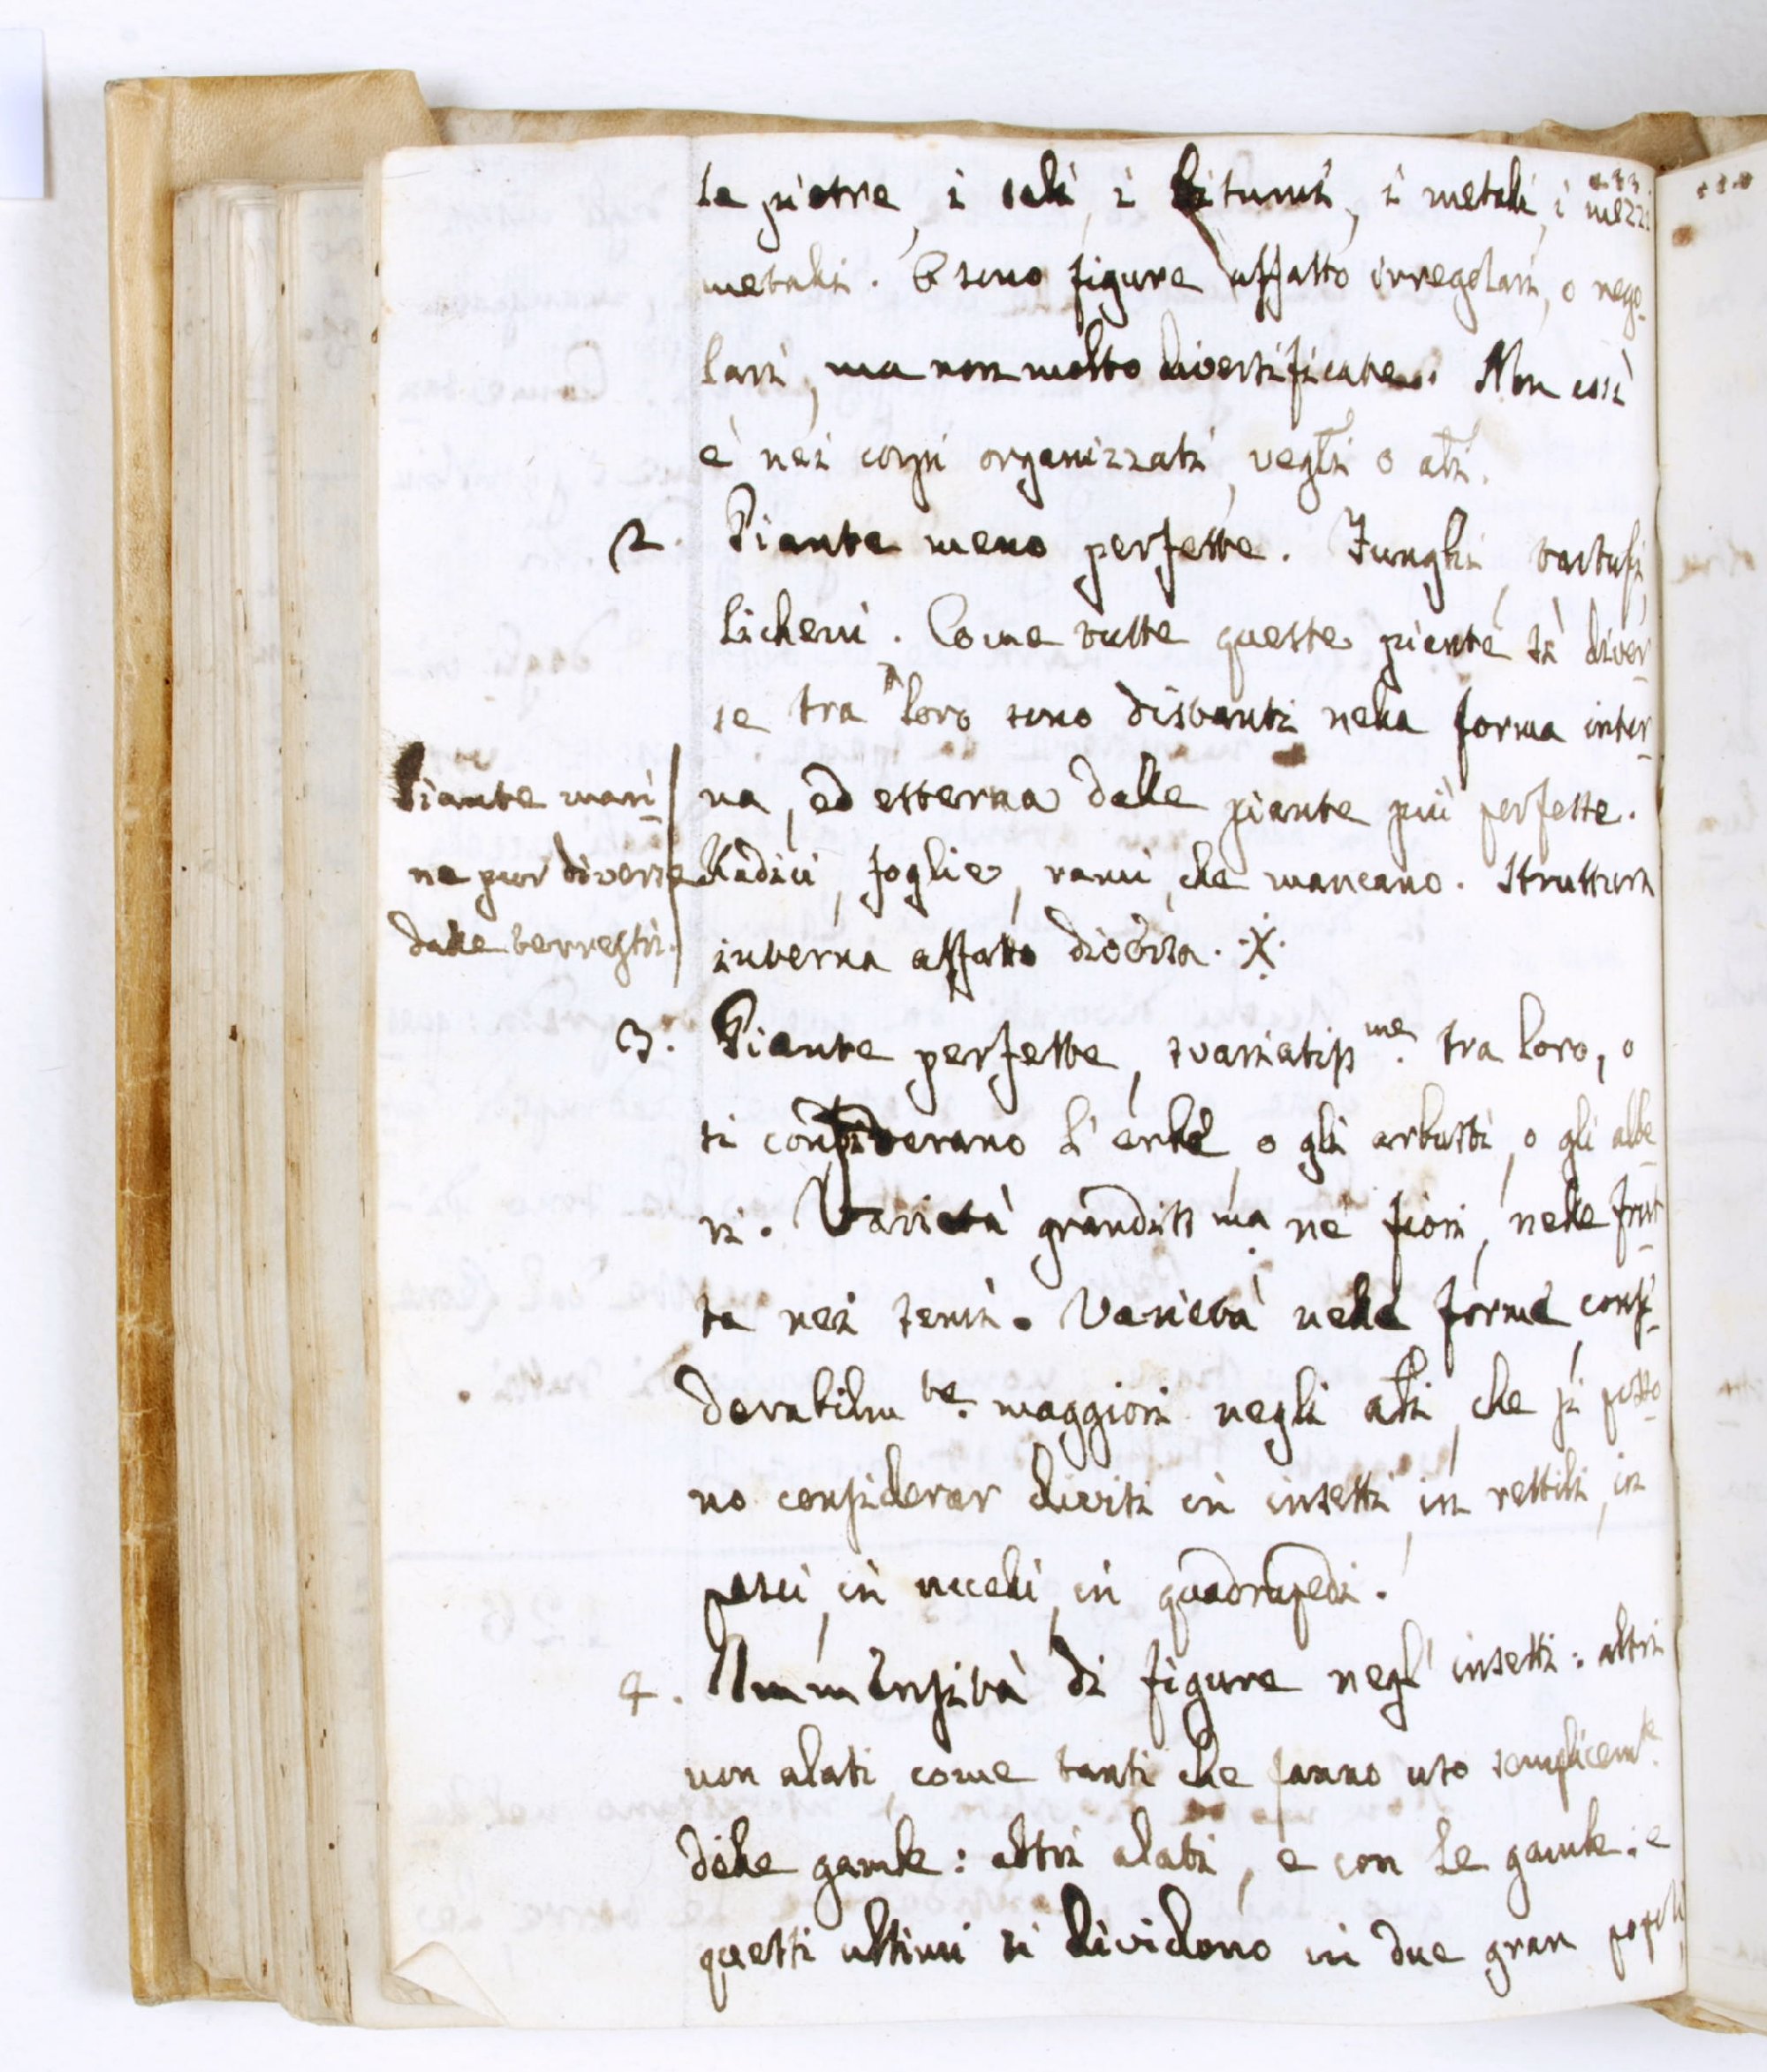 le pietre, i sali, i bitumi, i metalli, i mezzi
metalli. E sono figure affatto irregolari, o rego-
lari, ma non molto diversificate. Non così
è nei corpi organizzati, vegli o ali.
2. Piante meno perfette. Funghi, tartufi,
licheni. Come tutte queste piante sì diver-
se tra loro sono distanti nella forma inter-
na, ed esterna dalle piante più perfette.
Radici, foglie, rami, che mancano. Struttura
interna affatto diversa. ·X·
Piante mari-
ne pur diverse
dalle terrestri.
3. Piante perfette, svariatissme. tra loro, o
si considerano l'erbe, o gli arbusti, o gli albe-
ri. Varietà grandissma. ne' fiori, nelle frut-
ta nei semi. Varietà nelle forme consi-
derabilmte. maggiori negli ali, che si posso-
no considerar divisi in insetti, in rettili, in
pesci, in uccelli, in quadrupedi.
4. Immensità di figure negl' insetti: altri
non alati come tanti che fanno uso semplicemte.
delle gambe: altri alati, e con le gambe: e
questi ultimi si dividono in due gran popoli,